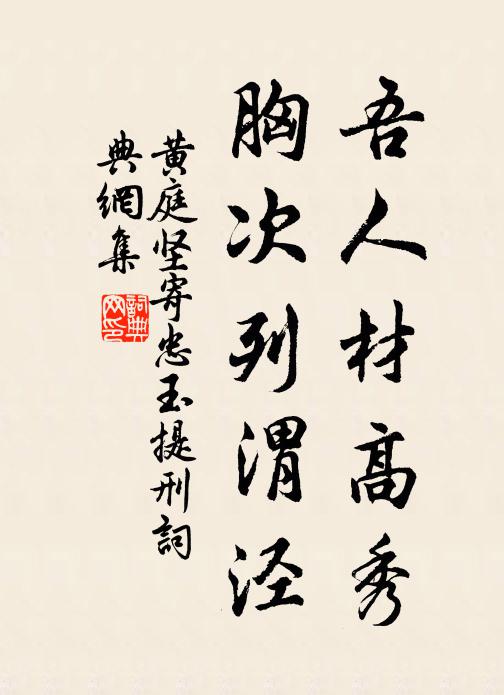 吾人材高秀
胸次列渭泾
黄庭坚寄忠玉提刑詞
典網集
詞典网印